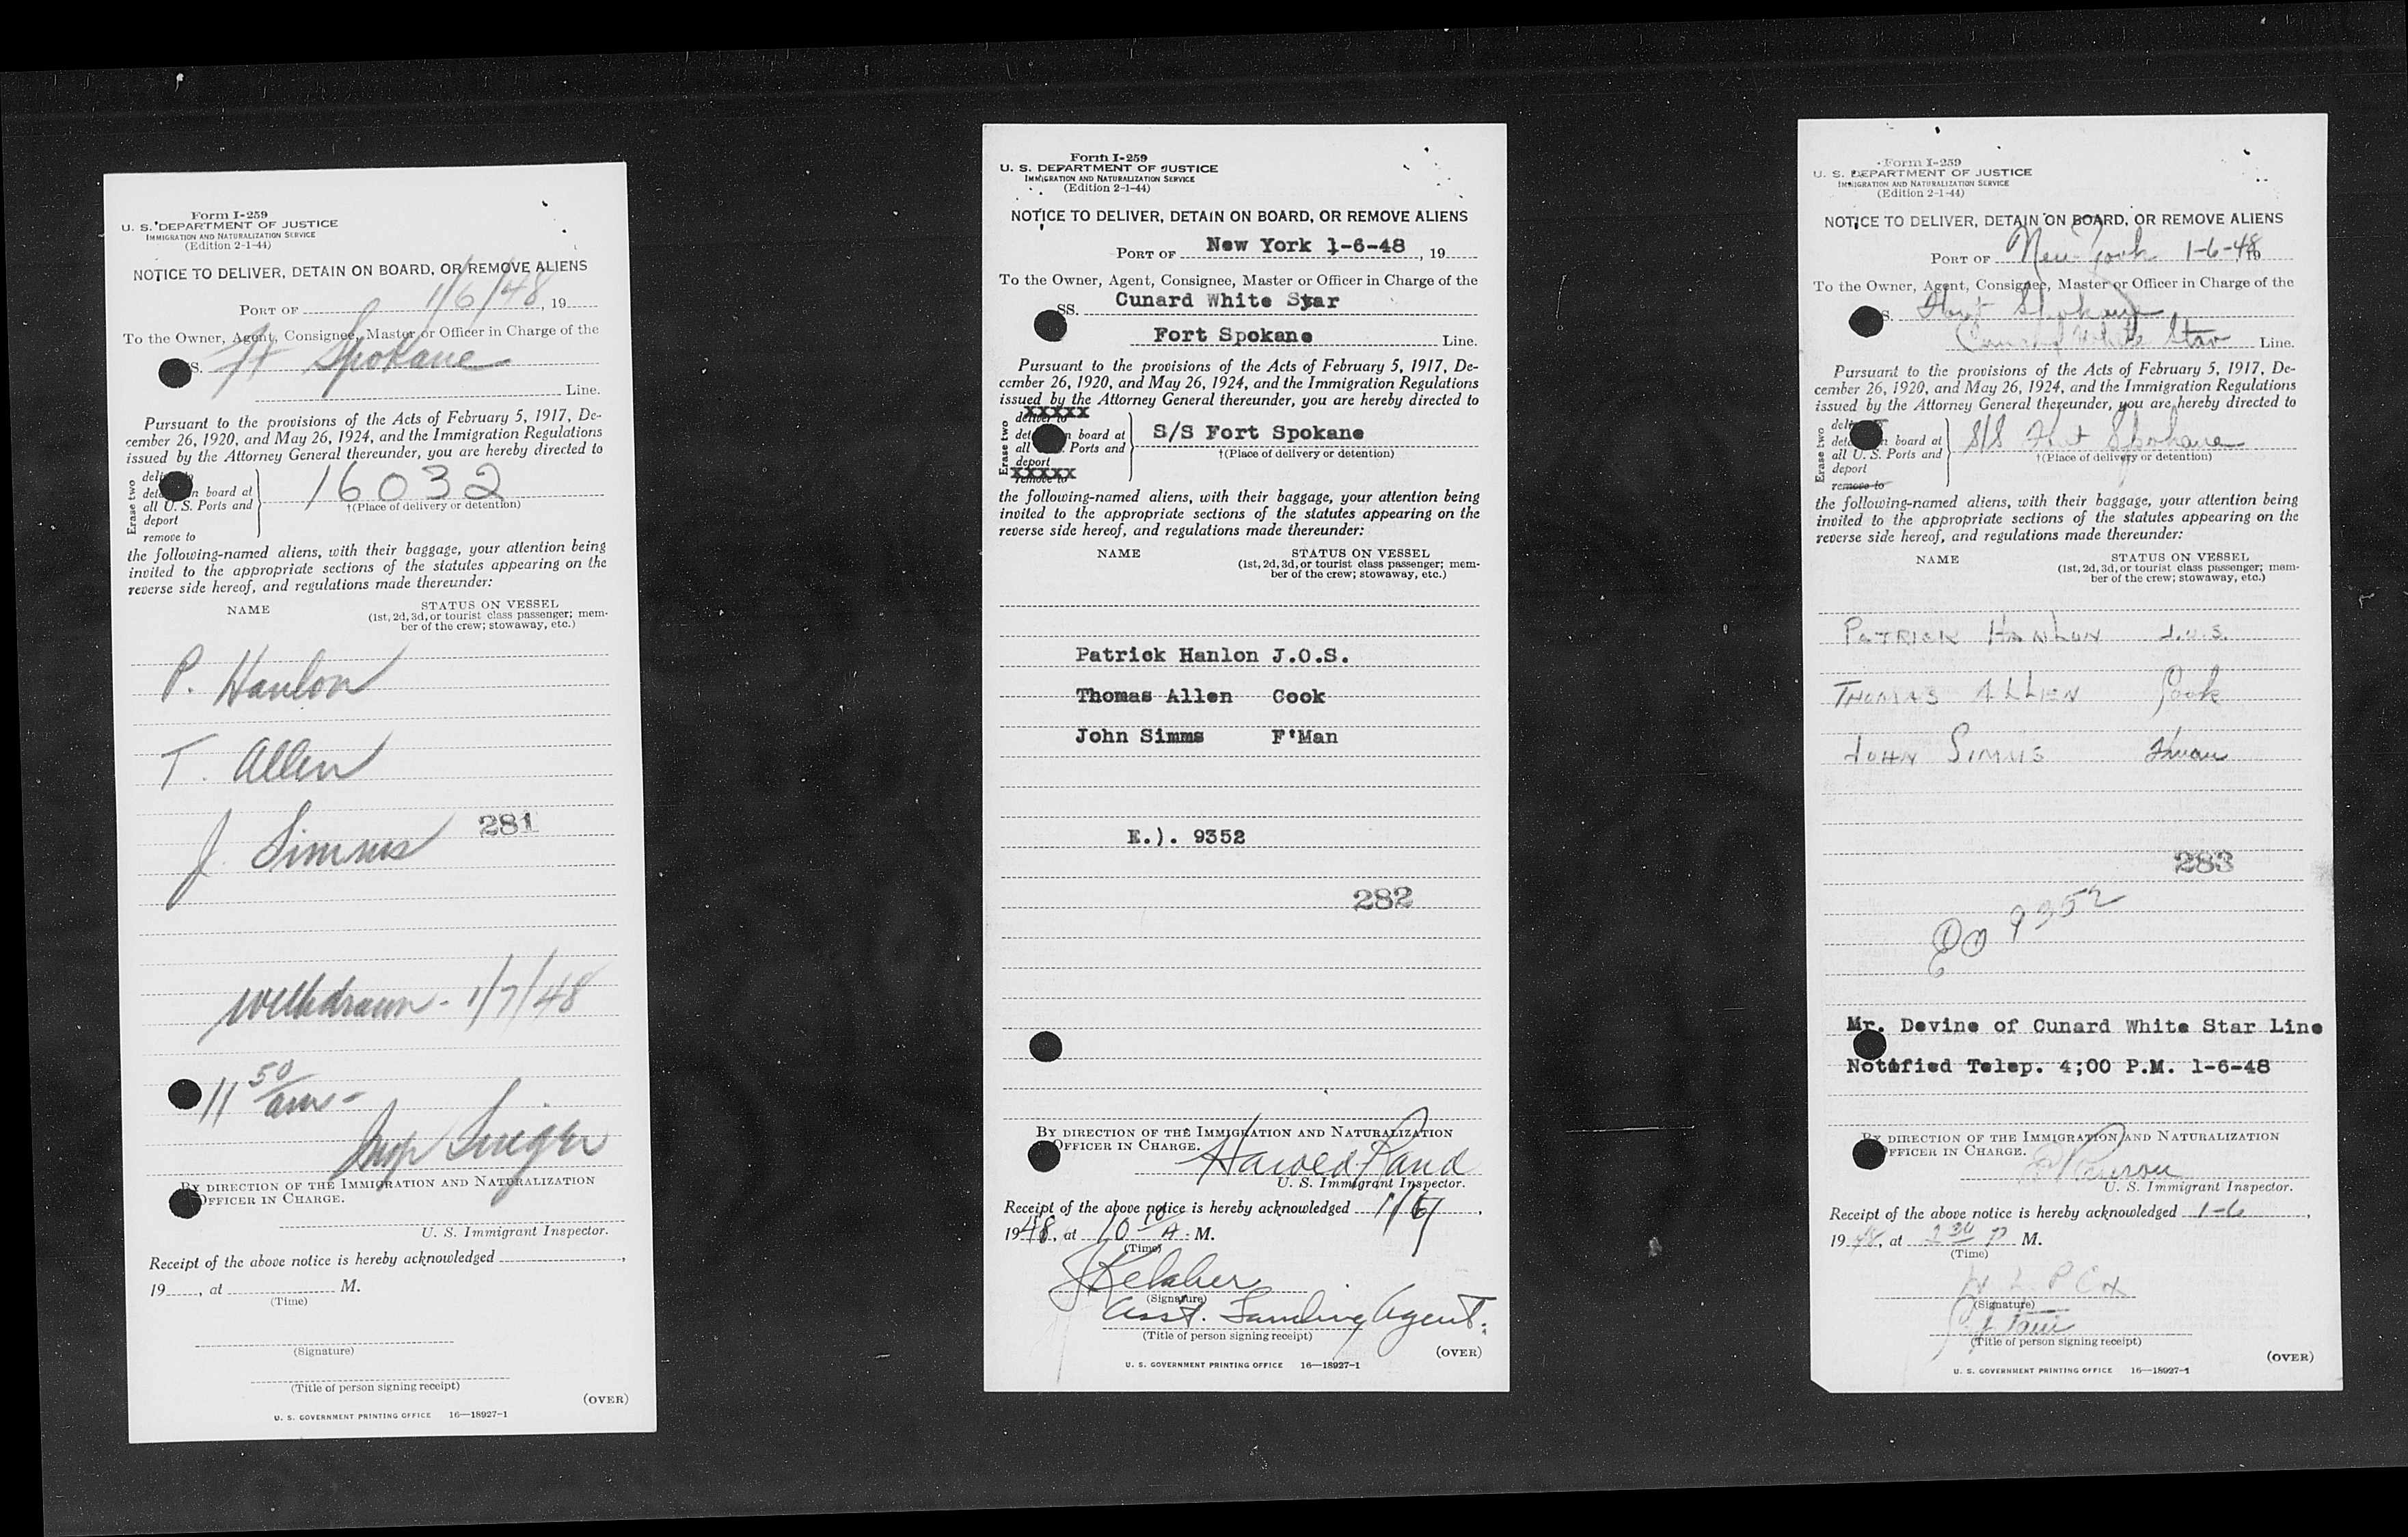 Form I-259
U. S. DEPARTMENT OF JUSTICE
IMMIGRATION AND NATURALIZATION SERVICE
(Edition 2-1-44)
NOTICE TO DELIVER, DETAIN ON BOARD, OR REMOVE ALIENS
PORT OF 1/6/48, 19
To the Owner, Agent, Consignee, Master or Officer in Charge of the
S. Ft Spokane
Line.
Pursuant to the provisions of the Acts of February 5, 1917, De-
cember 26, 1920, and May 26, 1924, and the Immigration Regulations
issued by the Attorney General thereunder, you are hereby directed to
Erase two
board at
all U. S. Ports and
deport
remove to
16032
†(Place of delivery or detention)
the following-named aliens, with their baggage, your attention being
invited to the appropriate sections of the statutes appearing on the
reverse side hereof, and regulations made thereunder:
NAME STATUS ON VESSEL
(1st, 2d, 3d, or tourist class passenger; mem-
ber of the crew; stowaway, etc.)
P. Hanlon
T. Allen
J. Simms 281
withdrawn - 1/7/48
11 50 am -
Insp
BY DIRECTION OF THE IMMIGRATION AND NATURALIZATION
OFFICER IN CHARGE.
U. S. Immigrant Inspector.
Receipt of the above notice is hereby acknowledged ,
19 , at M.
(Time)
(Signature)
(Title of person signing receipt)
(OVER)
U. S. GOVERNMENT PRINTING OFFICE 16—18927-1
Form I-259
U. S. DEPARTMENT OF JUSTICE
IMMIGRATION AND NATURALIZATION SERVICE
(Edition 2-1-44)
NOTICE TO DELIVER, DETAIN ON BOARD, OR REMOVE ALIENS
PORT OF New York 1-6-48, 19
To the Owner, Agent, Consignee, Master or Officer in Charge of the
SS. Cunard White Star
Fort Spokane Line.
Pursuant to the provisions of the Acts of February 5, 1917, De-
cember 26, 1920, and May 26, 1924, and the Immigration Regulations
issued by the Attorney General thereunder, you are hereby directed to
XXXXX
deliver to
Erase two
board at
all Ports and
deport
XXXXX
remove to
S/S Fort Spokane
†(Place of delivery or detention)
the following-named aliens, with their baggage, your attention being
invited to the appropriate sections of the statutes appearing on the
reverse side hereof, and regulations made thereunder:
NAME STATUS ON VESSEL
(1st, 2d, 3d, or tourist class passenger; mem-
ber of the crew; stowaway, etc.)
Patrick Hanlon J.O.S.
Thomas Allen Cook
John Simms F'Man
E.). 9352
282
BY DIRECTION OF THE IMMIGRATION AND NATURALIZATION
OFFICER IN CHARGE.
Harold Rand
U. S. Immigrant Inspector.
Receipt of the above notice is hereby acknowledged ,
1948, at 10 10 A. M.
(Time)
J Kelaher
(Signature)
Asst. Landing Agent.
(Title of person signing receipt)
(OVER)
U. S. GOVERNMENT PRINTING OFFICE 16—18927-1
Form I-259
U. S. DEPARTMENT OF JUSTICE
IMMIGRATION AND NATURALIZATION SERVICE
(Edition 2-1-44)
NOTICE TO DELIVER, DETAIN ON BOARD, OR REMOVE ALIENS
PORT OF New York 1-6-48
To the Owner, Agent, Consignee, Master or Officer in Charge of the
S. Fort Spokane
Cunard White Star Line.
Pursuant to the provisions of the Acts of February 5, 1917, De-
cember 26, 1920, and May 26, 1924, and the Immigration Regulations
issued by the Attorney General thereunder, you are hereby directed to
Erase two
board at
all U. S. Ports and
deport
remove to
S/S Fort Spokane
†(Place of delivery or detention)
the following-named aliens, with their baggage, your attention being
invited to the appropriate sections of the statutes appearing on the
reverse side hereof, and regulations made thereunder:
NAME STATUS ON VESSEL
(1st, 2d, 3d, or tourist class passenger; mem-
ber of the crew; stowaway, etc.)
PATRICK HANLON J.O.S.
THOMAS ALLEN Cook
JOHN SIMMS Fman
283
EO 9352
Mr. Devine of Cunard White Star Line
Notified Telep. 4;00 P.M. 1-6-48
BY DIRECTION OF THE IMMIGRATION AND NATURALIZATION
OFFICER IN CHARGE.
U. S. Immigrant Inspector.
Receipt of the above notice is hereby acknowledged 1-6,
1948, at 2 30 P M.
(Time)
(Signature)
(Title of person signing receipt)
(OVER)
U. S. GOVERNMENT PRINTING OFFICE 16—18927-1